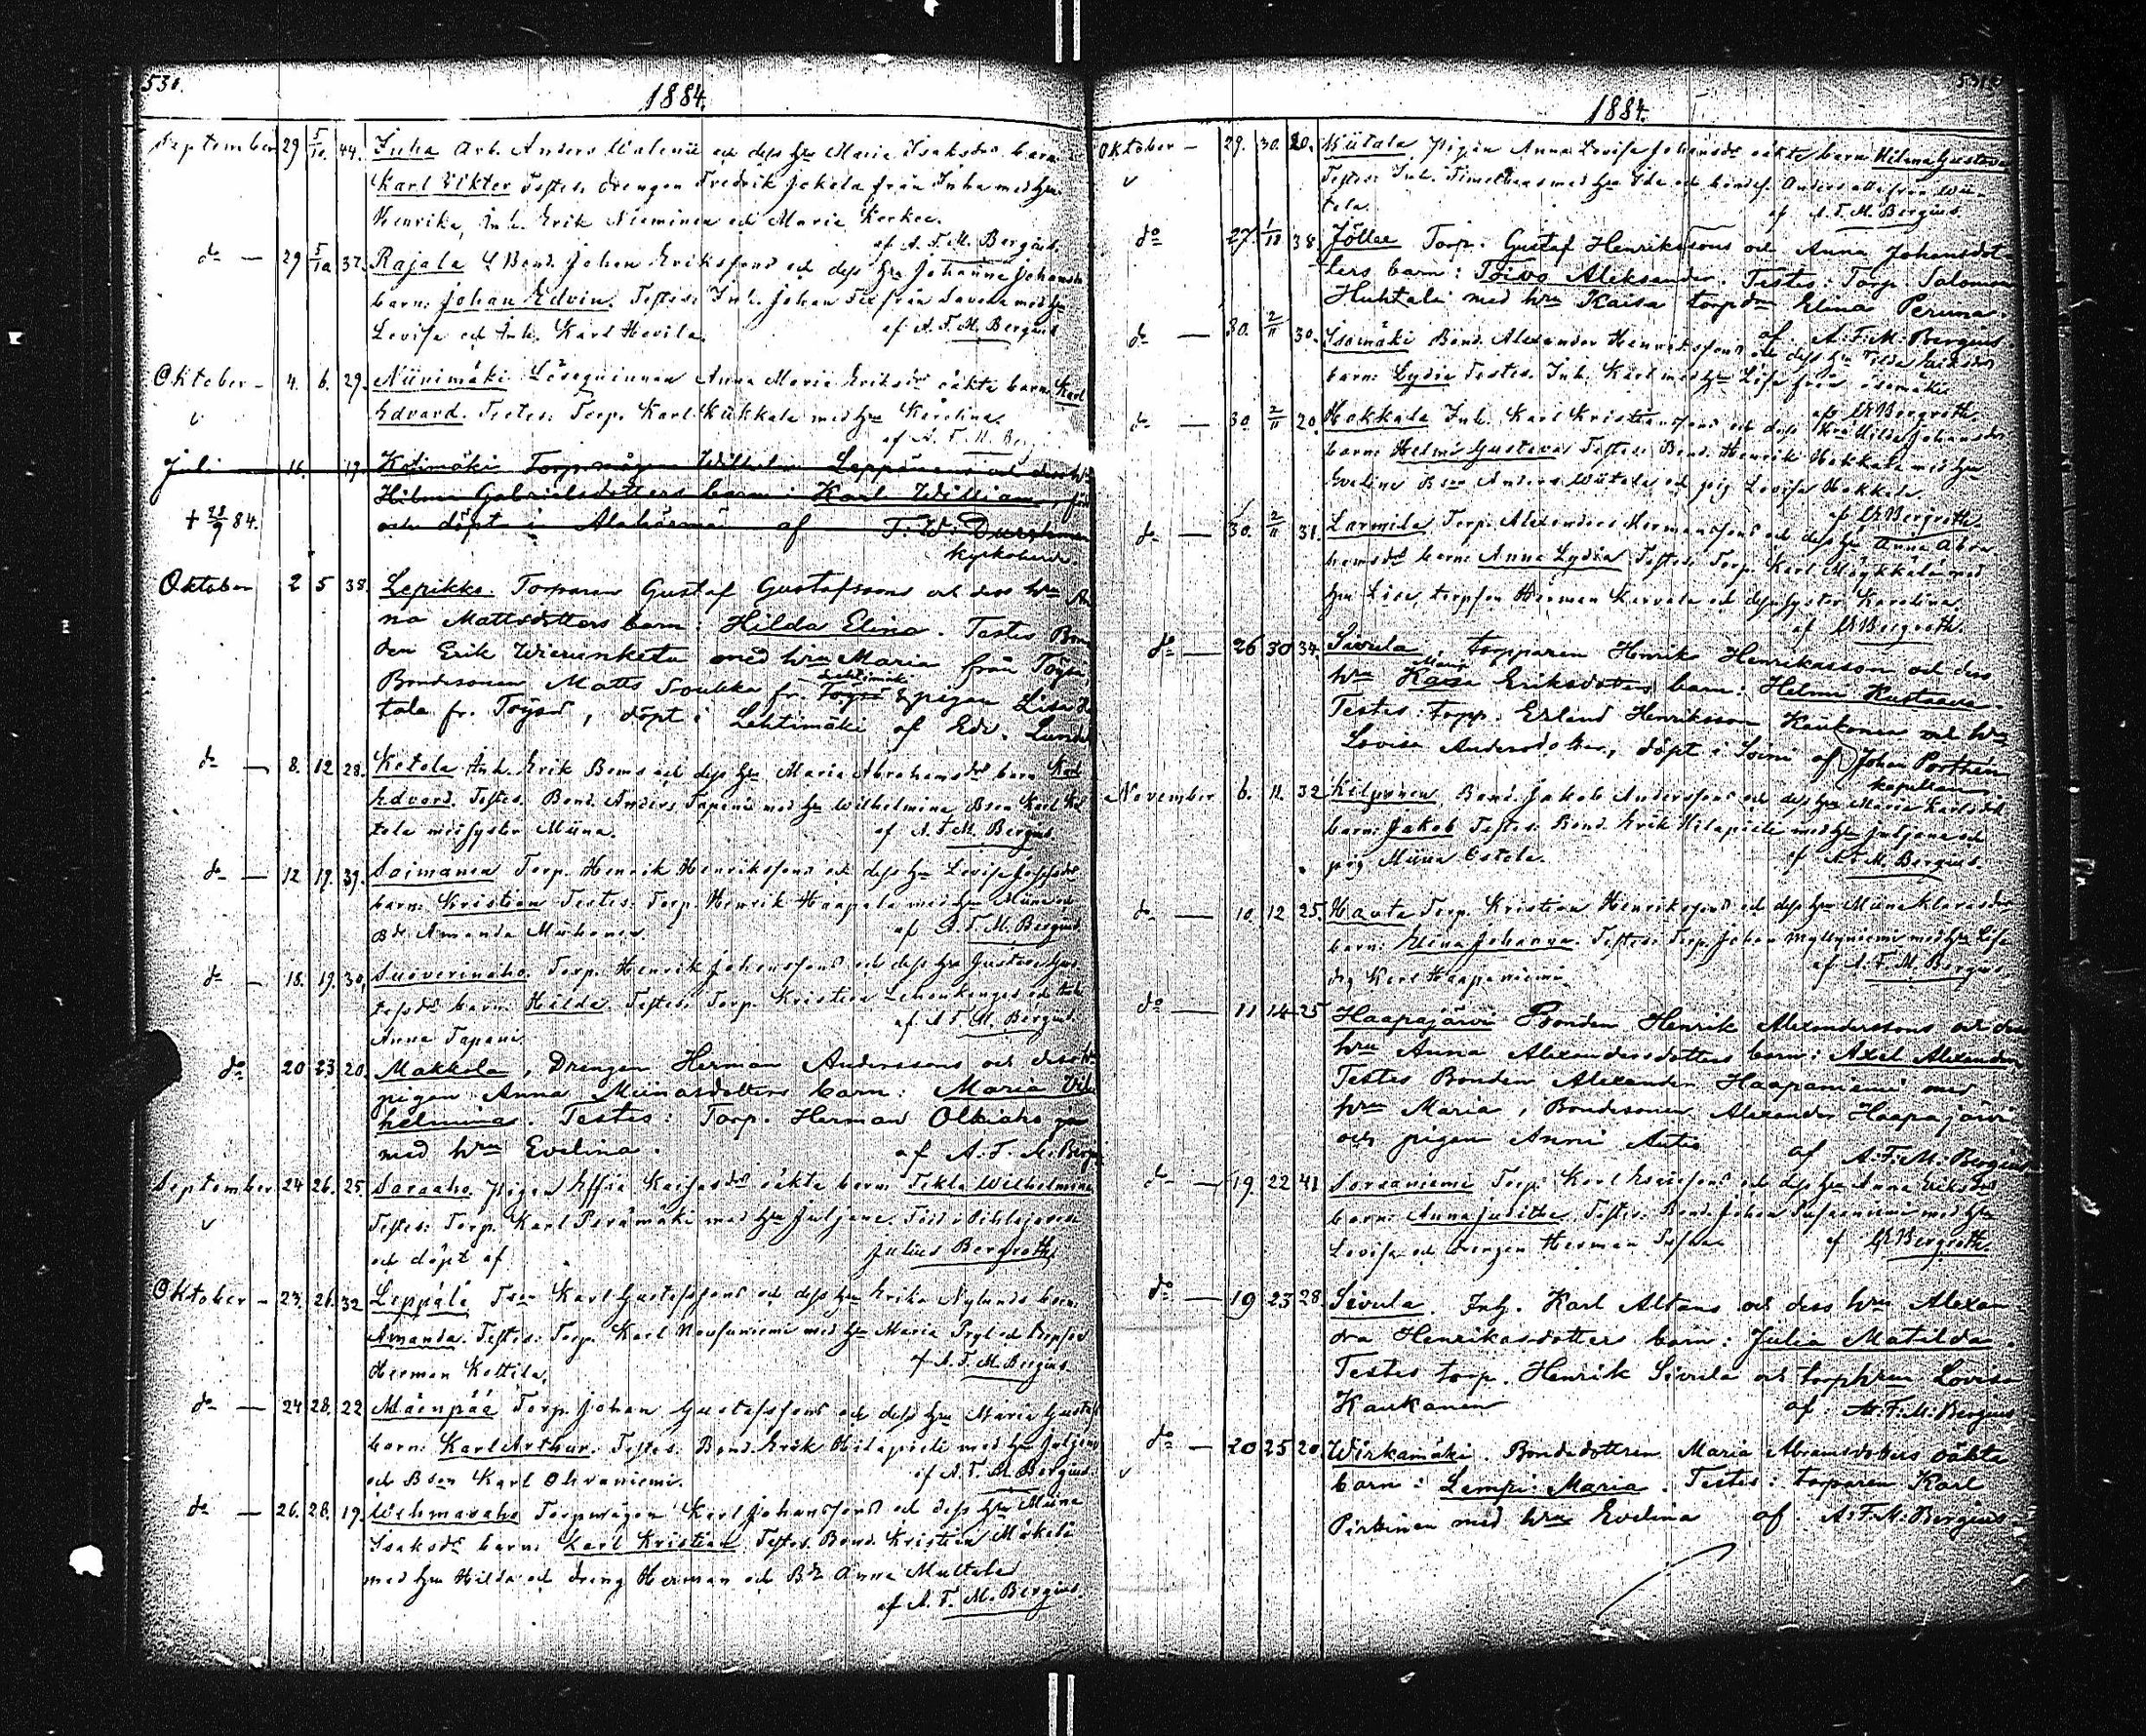 530.
1884.
September 29 5/10. 44. Inha Arb. Anders Walenii och dess hu Maria Isaksdr barn
Karl Viktor Testes: drengen Fredrik Jokela från Inha med hu
Henrika, Inh. Erik Nieminen och Maria
af A. F. M. Bergius.
do — 29 5/10 37. Rajala Bond. Johan Erikssons och dess hu Johanna Johansdr
barn: Johan Edvin. Testes: Inh. Johan från med hu
Lovisa och Inh. Karl Hevila.
af A. F. M. Bergius
Oktober — 4. 6. 29. Niinimäki Anna Maria Eriksdr oäkta barn: Karl
Edvard. Testes: Torp. Karl Kukkola med hu Karolina.
af A. F. M. Ber
Juli 16. 19. Kotimäki Torp.mågen Wilhelm Leppänens och dess hu
Hilma Gabrielsdotters barn: Karl William, född
† 28/9 84. och döpt i Alahärmä af F. W. Durchman
kyrkoherde.
Oktober 2 5 38. Lepikko. Torparen Gustaf Gustafssons och dess hru An
na Mattsdotters barn: Hilda Elina. Testes Bon
den Erik Wierunketo med hru Maria från Töysä
Bondesonen Matts Soukka fr. Lehtimäki Töysä & pigan Lisa
tala fr. Töysä, döpt i Lehtimäki af Edv. Lundel
do — 8. 12 28. Ketola Inh. Erik Bems och dess hu Maria Abrahamsdr barn Karl
Edvard. Testes. Bond. Anders Tapani med hu Wilhelmina Bson Karl
tola med syster Miina.
af A. F. M. Bergius
do — 12 19. 39. Saimanen Torp. Henrik Henrikssons och dess hu Lovisa
barn: Kristian Testes: Torp. Henrik Haapala med hu Miina och
Bdr Amanda
af A. F. M. Bergius
do — 18. 19. 30, Suoverinaho. Torp. Henrik Johanssons och dess hu Gustava Gus
tafsdr barn: Hilda. Testes: Torp. Kristian och
Anna Tapani
af A. F. M. Bergius.
do 20 23 20. Makkola, Drengen Herman Anderssons och dess hu
pigan Anna Miinasdotters barn: Maria Vil
helmina. Testes: Torp. Herman Olkiaho
med hru Evelina.
af A. F. M. Bergi
September 24 26. 25. Saraaho. Pigan Effia Kaisasdr oäkta barn Tekla Wilhelmina
Testes: Torp. Karl Perämäki med hu Juljana. Född i Pihlajavesi
och döpt af
Julius Bergroth
Oktober — 23. 26. 32 Leppälä Tson Karl Gustafssons och dess hu Erika Nylunds barn
Amanda. Testes: Torp. Karl med hu Maria och torpson
Herman Kottila.
af A. F. M. Bergius.
do — 24 28. 22 Mäenpää Torp. Johan Gustafssons och dess hu Maria Gustafs
barn: Karl Arthur. Testes: Bond. Erik Hilapieli med hu Juljana
och Bson Karl Olkaniemi.
af A. F. M. Bergius.
do — 26. 28. 19. Uchmanaho Torpmågen Karl Johanssons och dess hu Miina
Isaksdr barn: Karl Kristian. Testes. Bond. Kristian Mäkelä
med hu Hilda och dreng Herman och Bdr Anna Multala
af A. F. M. Bergius.
531.
1884.
Oktober — 29. 30. 20. Niitala Pigan Anna Lovisa Johansdr oäkta barn Hilma Gustava
Testes: Inh. med hu Ida och bondes. Anders från Nii-
tala.
af A. F. M. Bergius
do 27. 1/11 38. Jöllee Torp. Gustaf Henrikssons och Anna Johansdot-
ters barn: Toivo Aleksander. Testes: Torp. Salomon
Huhtala med hru Kaisa torpdr Elina Peruna.
af A. F. M. Bergius
do — 30. 2/11 30. Isomäki Bond. Alexander Henrikssons och dess hu Tilda Eriksdr
barn: Lydia Testes. Inh. Karl med hu Lisa från Isomäki
af Bergroth
do — 30 2/11 20. Hakkala Inh. Karl Kristianssons och dess hru Hilda Johansdr
barn: Helmi Gustava Testes: Bond. Henrik Hakkala med hu
Evelina Bson Anders Niitala och pig Lovisa Hakkala.
af Bergroth
do — 30. 2/11 31. Larmila Torp. Alexanders Hermanssons och dess hu Anna Abra
hamsdr barn: Anna Lydia Testes: Torp. Karl med
hu Lisa, torpson Herman Karvala och dess syster Karolina.
af Bergroth.
do — 26 30 34. Sivula, torpparen Henrik Henrikssons och dess
hru Maria Kaisa Eriksdotters barn: Helmi Kustaava.
Testes: torp. Erland Henriksson Kaukonen och hru
Lovisa Andersdotter, döpt i Soini af Johan Porthén
kapellan
November 6. 11. 32 Kilponen Bond. Jakob Anderssons och dess hu Maria Karlsdr
barn: Jakob Testes: Bond. Erik Hilapieli med hu Juljana och
pig Miina Ostola.
af A. F. M. Bergius.
do — 10. 12 25. Hauta Torp. Kristian Henrikssons och dess hu Miina Klarasdr
barn: Elina Johanna. Testes: Torp. Johan Myllyniemi med hu Lisa
drg Karl Haapaniemi
af A. F. M. Bergius
do — 11 14 25 Haapajärvi Bonden Henrik Alexanderssons och dess
hru Anna Alexandersdotters barn: Axel Alexander
Testes Bonden Alexander Haapaniemi med
hru Maria, Bondesonen Alexander Haapajärvi
och pigan Anni Autio
af A. F. M. Bergius
do — 19. 22 41 Soraaniemi Torp. Karl Esaiessons och dess hu Anna Eriksdrs
barn: Anna Juditha. Testes: Bond. Johan med hu
Lovisa och drengen Herman
af Bergroth.
do — 19 23 28. Sivula. Inh. Karl Altans och dess hru Alexan
dra Henriksdotters barn: Julia Matilda.
Testes torp. Henrik Sivula och torphrun Lovisa
Kaukonen
af A. F. M. Bergius
do — 20 25 20 Wirkamäki. Bondedottren Maria Abramsdotters oäkta
barn: Lempi Maria. Testes: torparen Karl
Pirkinen med hru Evelina af. A. F. M. Bergius